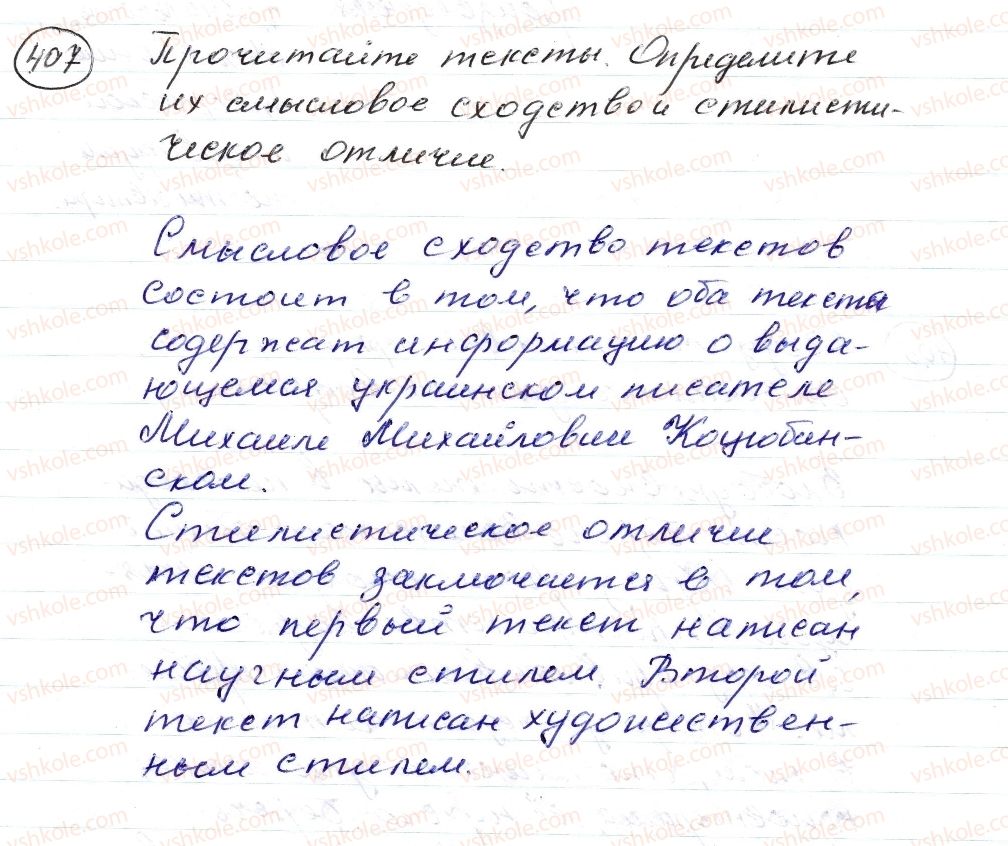 407 Прочитайте тексты. Определите
их смысловое сходство и стилисти-
ческое отличие.
Смысловое сходство текстов
состоит в том, что оба текста
содержат информацию о выда-
ющемся украинском писателе
Михаиле Михайловиче Коцюбин-
ском.
Стилистическое отличие
текстов заключается в том,
что первый текст написан
научным стилем. Второй
текст написан художествен-
ным стилем.
vshkole.com